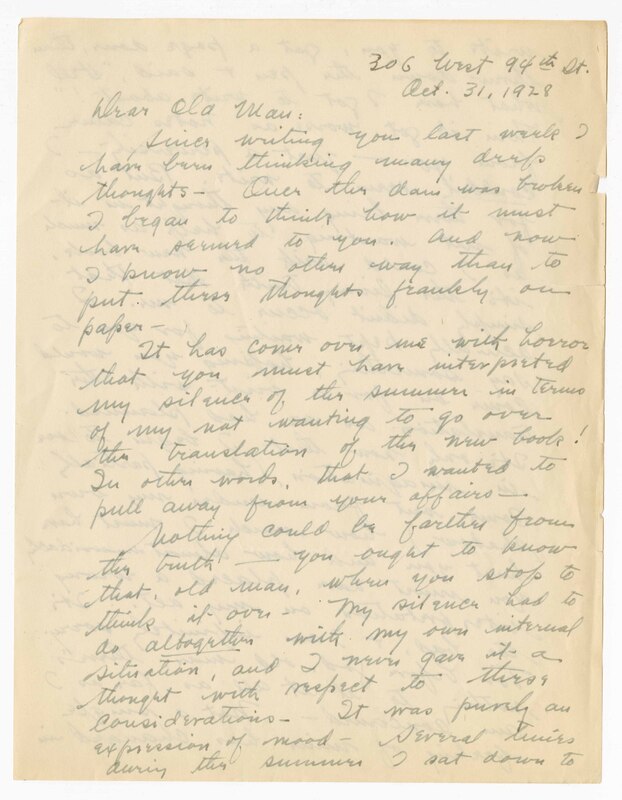 306 West 94th St.
Oct. 31, 1928
Dear Old Man:
Since writing you last week I
have been thinking many deep
thoughts — Once the dam was broken
I began to think how it must
have seemed to you. And now
I know no other way than to
put these thoughts frankly on
paper —
It has come over me with horror
that you must have interpreted
my silence of the summer in terms
of my not wanting to go over
the translation of the new book!
In other words, that I wanted to
pull away from your affairs —
Nothing could be farther from
the truth — you ought to know
that, old man, when you stop to
think it over — My silence had to
do altogether with my own internal
situation, and I never gave it a
thought with respect to these
considerations — It was purely an
expression of mood — Several times
during the summer I sat down to